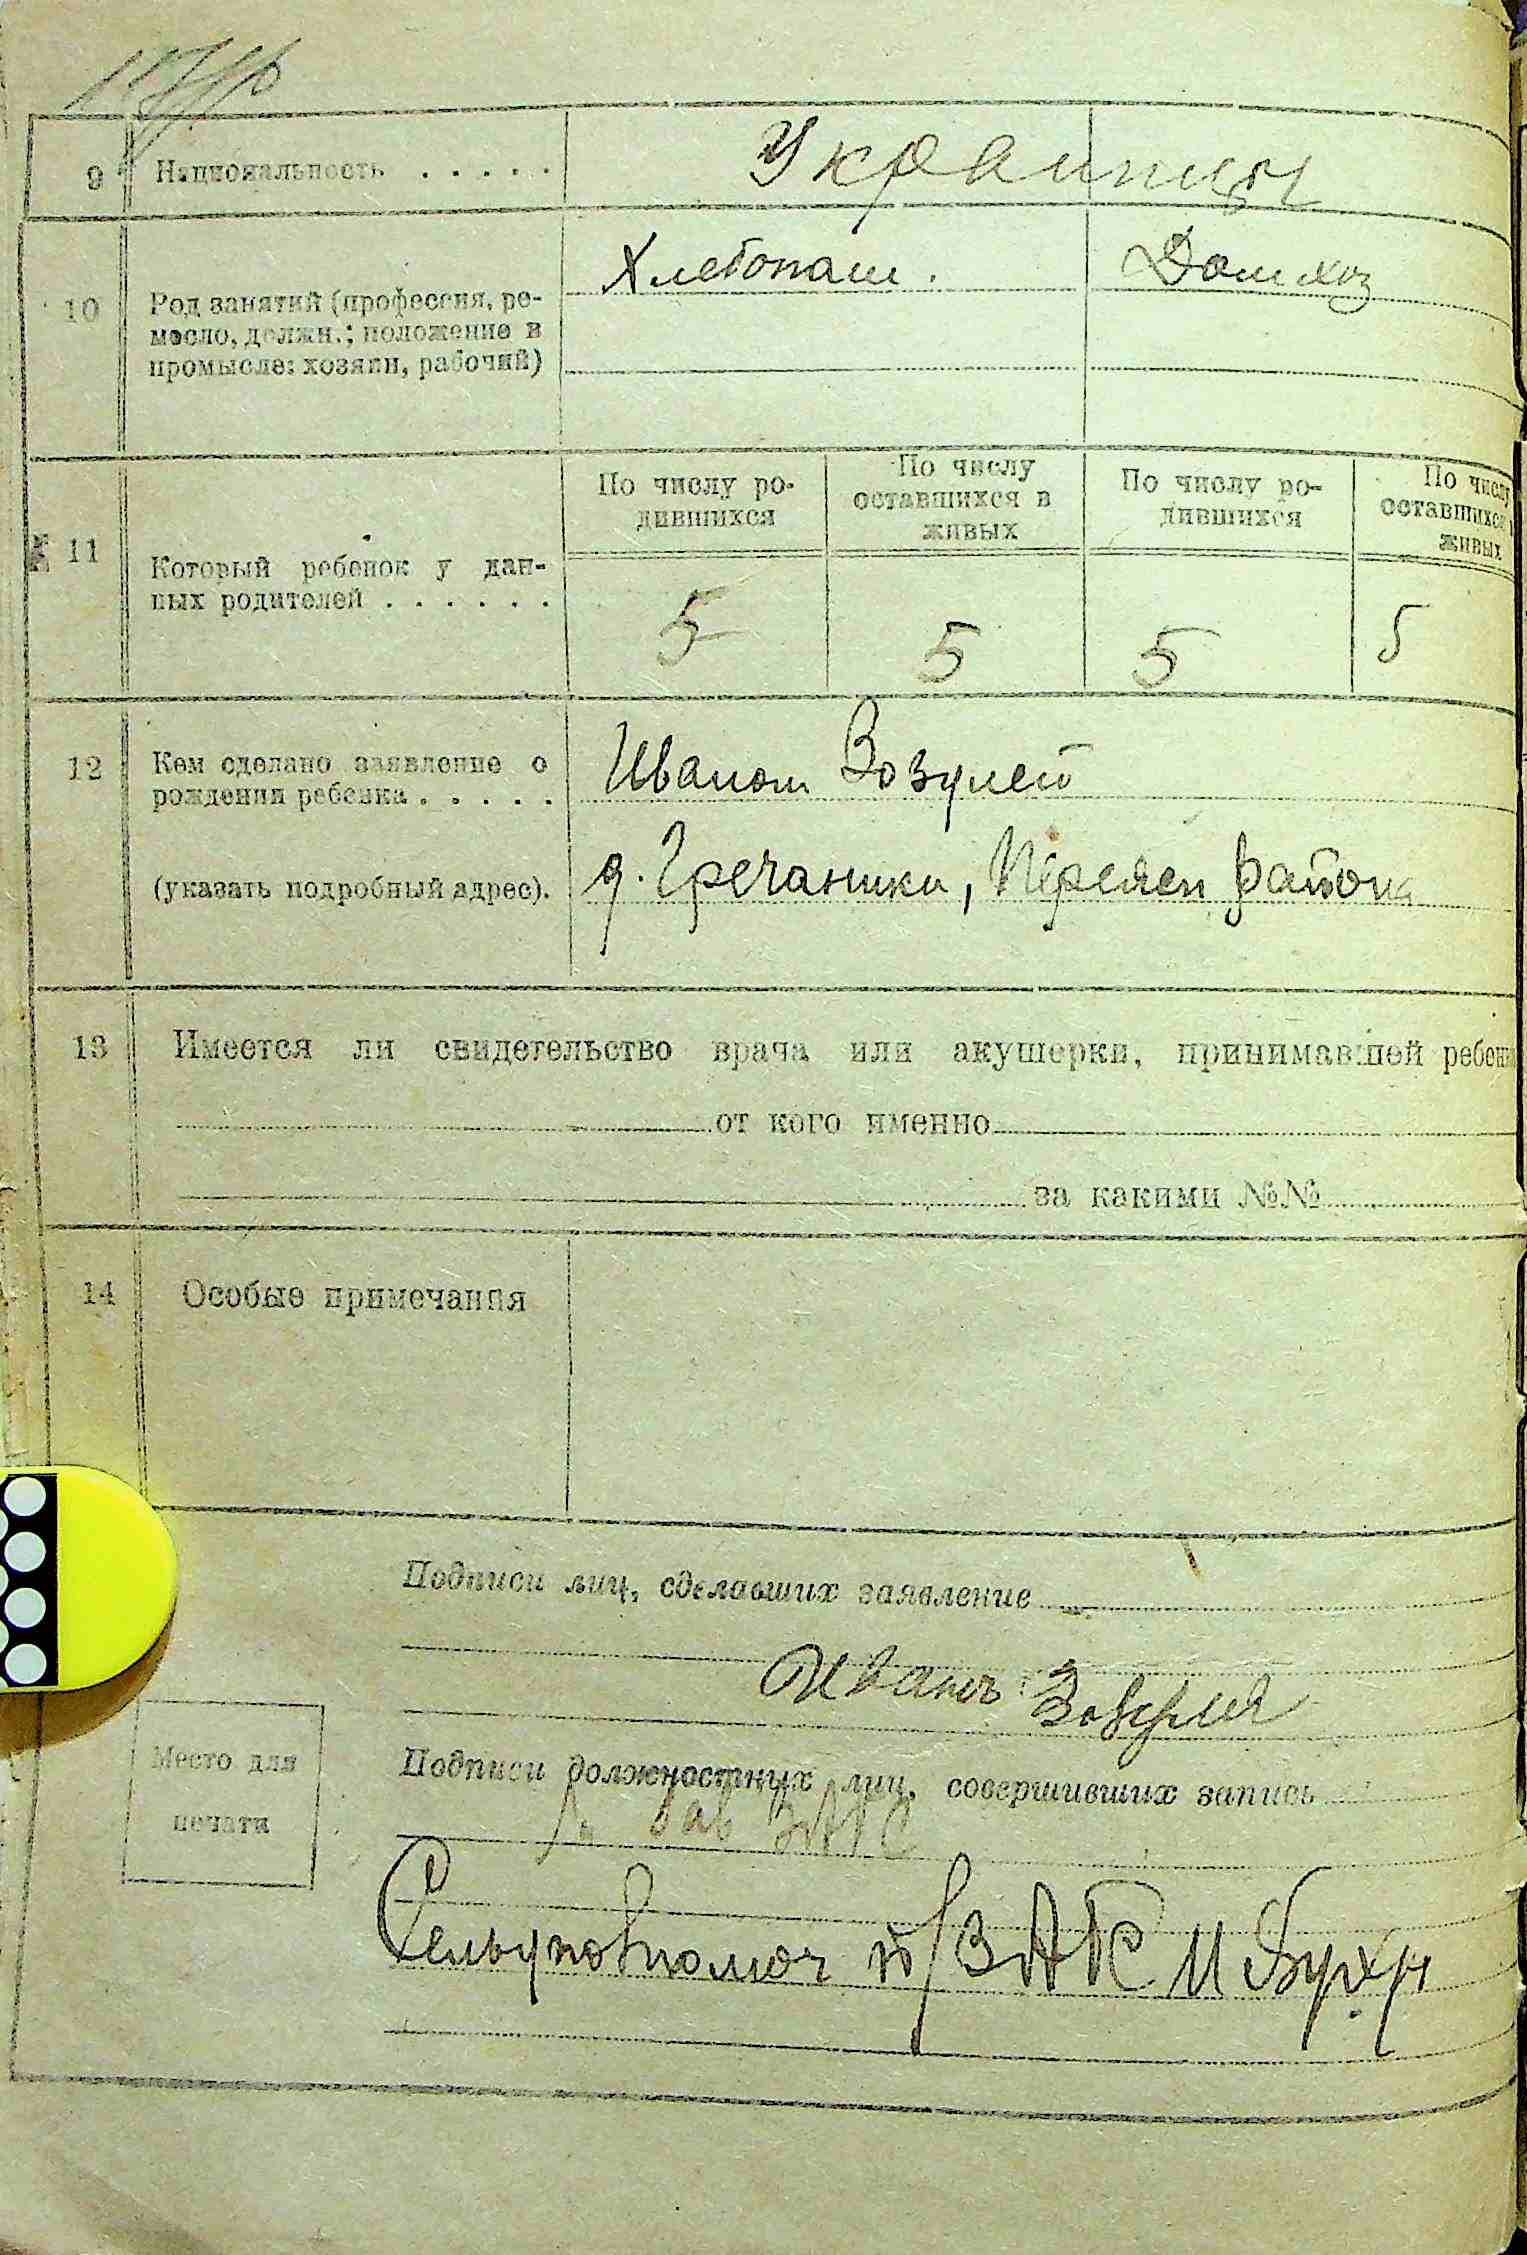 9 Национальность . . . . . Украинцы
10 Род занятий (профессия, ре-
месло, должн.; положение в
промысле: хозяин, рабочий)
Хлебопаш. Домхоз
11 Который ребенок у дан-
ных родителей . . . . . .
По числу ро-
дившихся
По числу
оставшихся в
живых
По числу ро-
дившихся
По числу
оставшихся
живых
5 5 5 5
12 Кем сделано заявление о
рождении ребенка . . . . .
(указать подробный адрес).
Иваном Зозулей
д. Гречаники, Переясл района
13 Имеется ли свидетельство врача или акушерки, принимавшей
от кого именно
за какими №№
14 Особые примечания
Подписи лиц, сделавших заявление
Иванъ Зозуля
Место для
печати
Подписи должностных лиц, совершивших запись
Зав ЗАГС
п/ЗАГС И